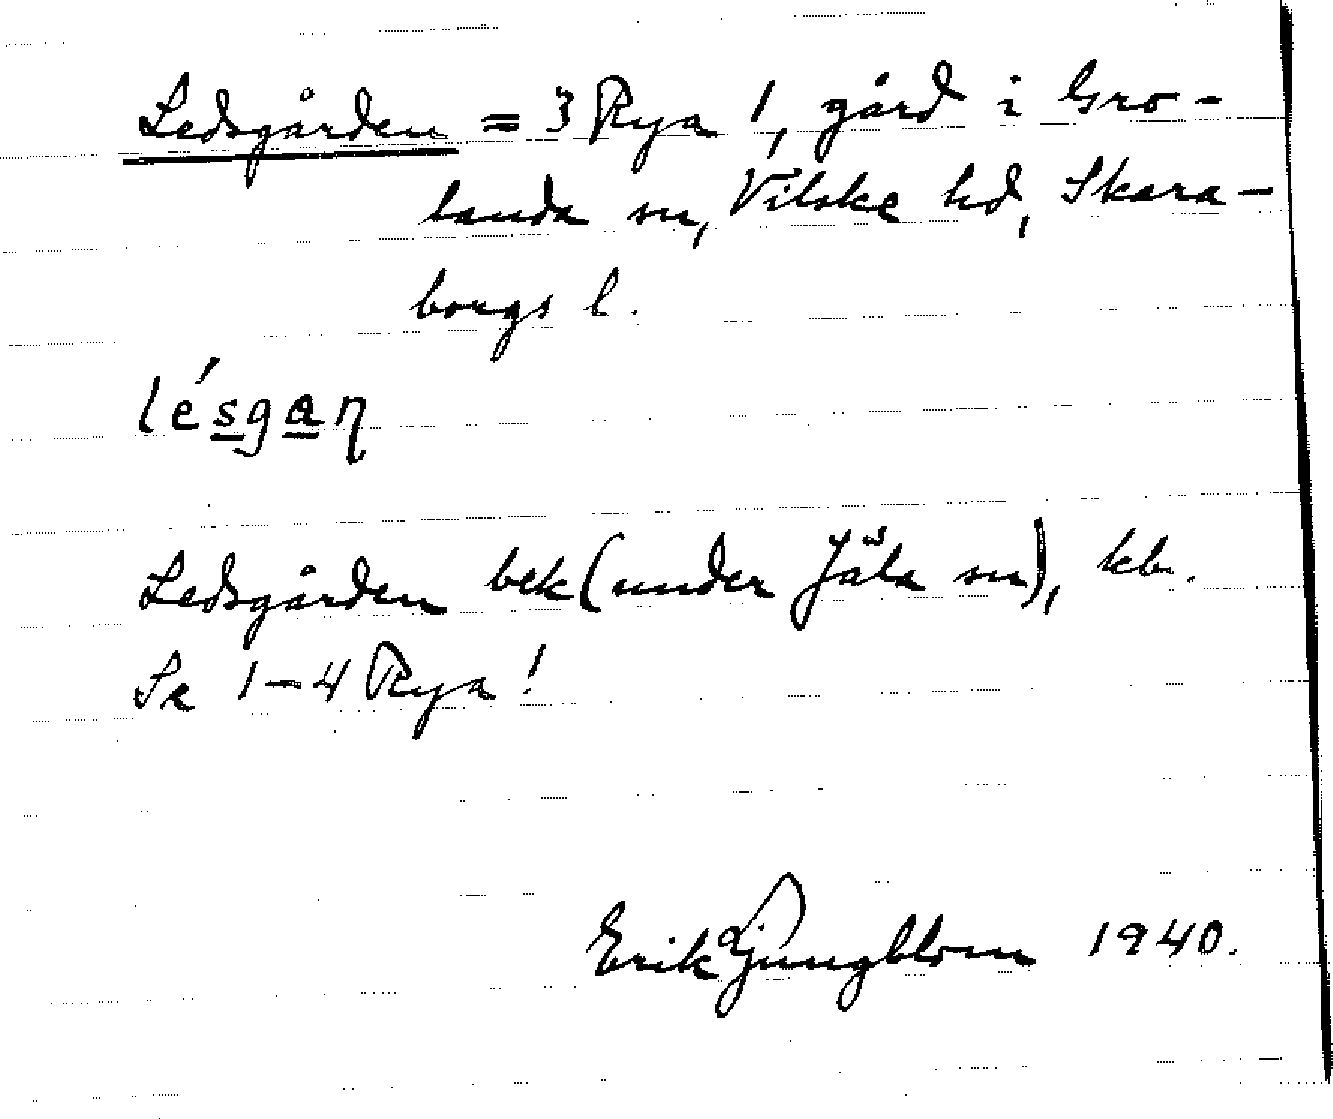 Ledsgården = 3 Rya 1, gård i Gro-
landa sn, Vilske hd, Skara-
borgs l.
lésgaƞ
Ledsgården bek (under Jäla sn), kb.
Se 1-4 Rya!
Erik Ljungblom 1940.